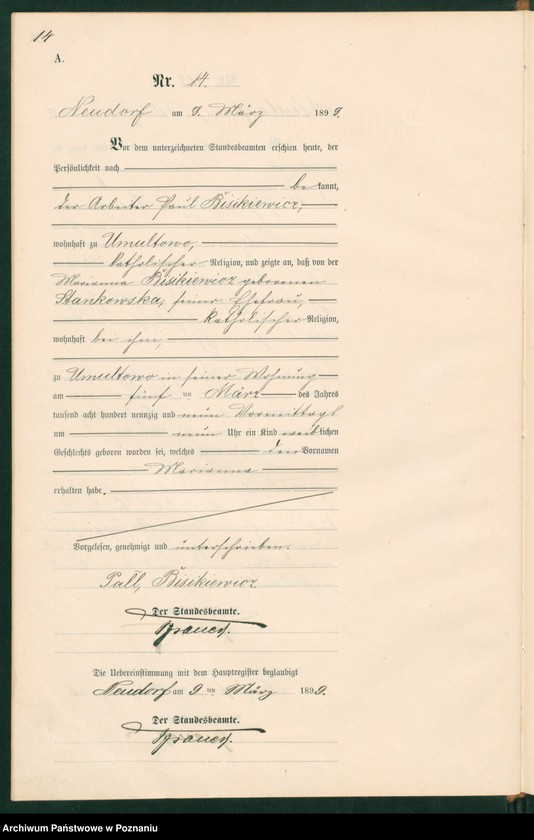 14
A.
Nr. 14.
Neudorf am 9. März 1899.
Vor dem unterzeichneten Standesbeamten erschien heute, der
Persönlichkeit nach
be kannt,
der Arbeiter Paul Bisikiewicz,
wohnhaft zu Umultowo,
katholischer Religion, und zeigte an, daß von der
Marianna Bisikiewicz geborenen
Stankowska, seiner Ehefrau,
katholischer Religion,
wohnhaft bei ihm,
zu Umultowo in seiner Wohnung
am fünf ten März des Jahres
tausend acht hundert neunzig und neun Vormittags
um neun Uhr ein Kind weiblichen
Geschlechts geboren worden sei, welches den Vornamen
Marianna
erhalten habe.
Vorgelesen, genehmigt und unterschrieben.
Bisikiewicz
Der Standesbeamte.
Die Uebereinstimmung mit dem Hauptregister beglaubigt
Neudorf am 9 ten März 1899.
Der Standesbeamte.
Archiwum Państwowe w Poznaniu